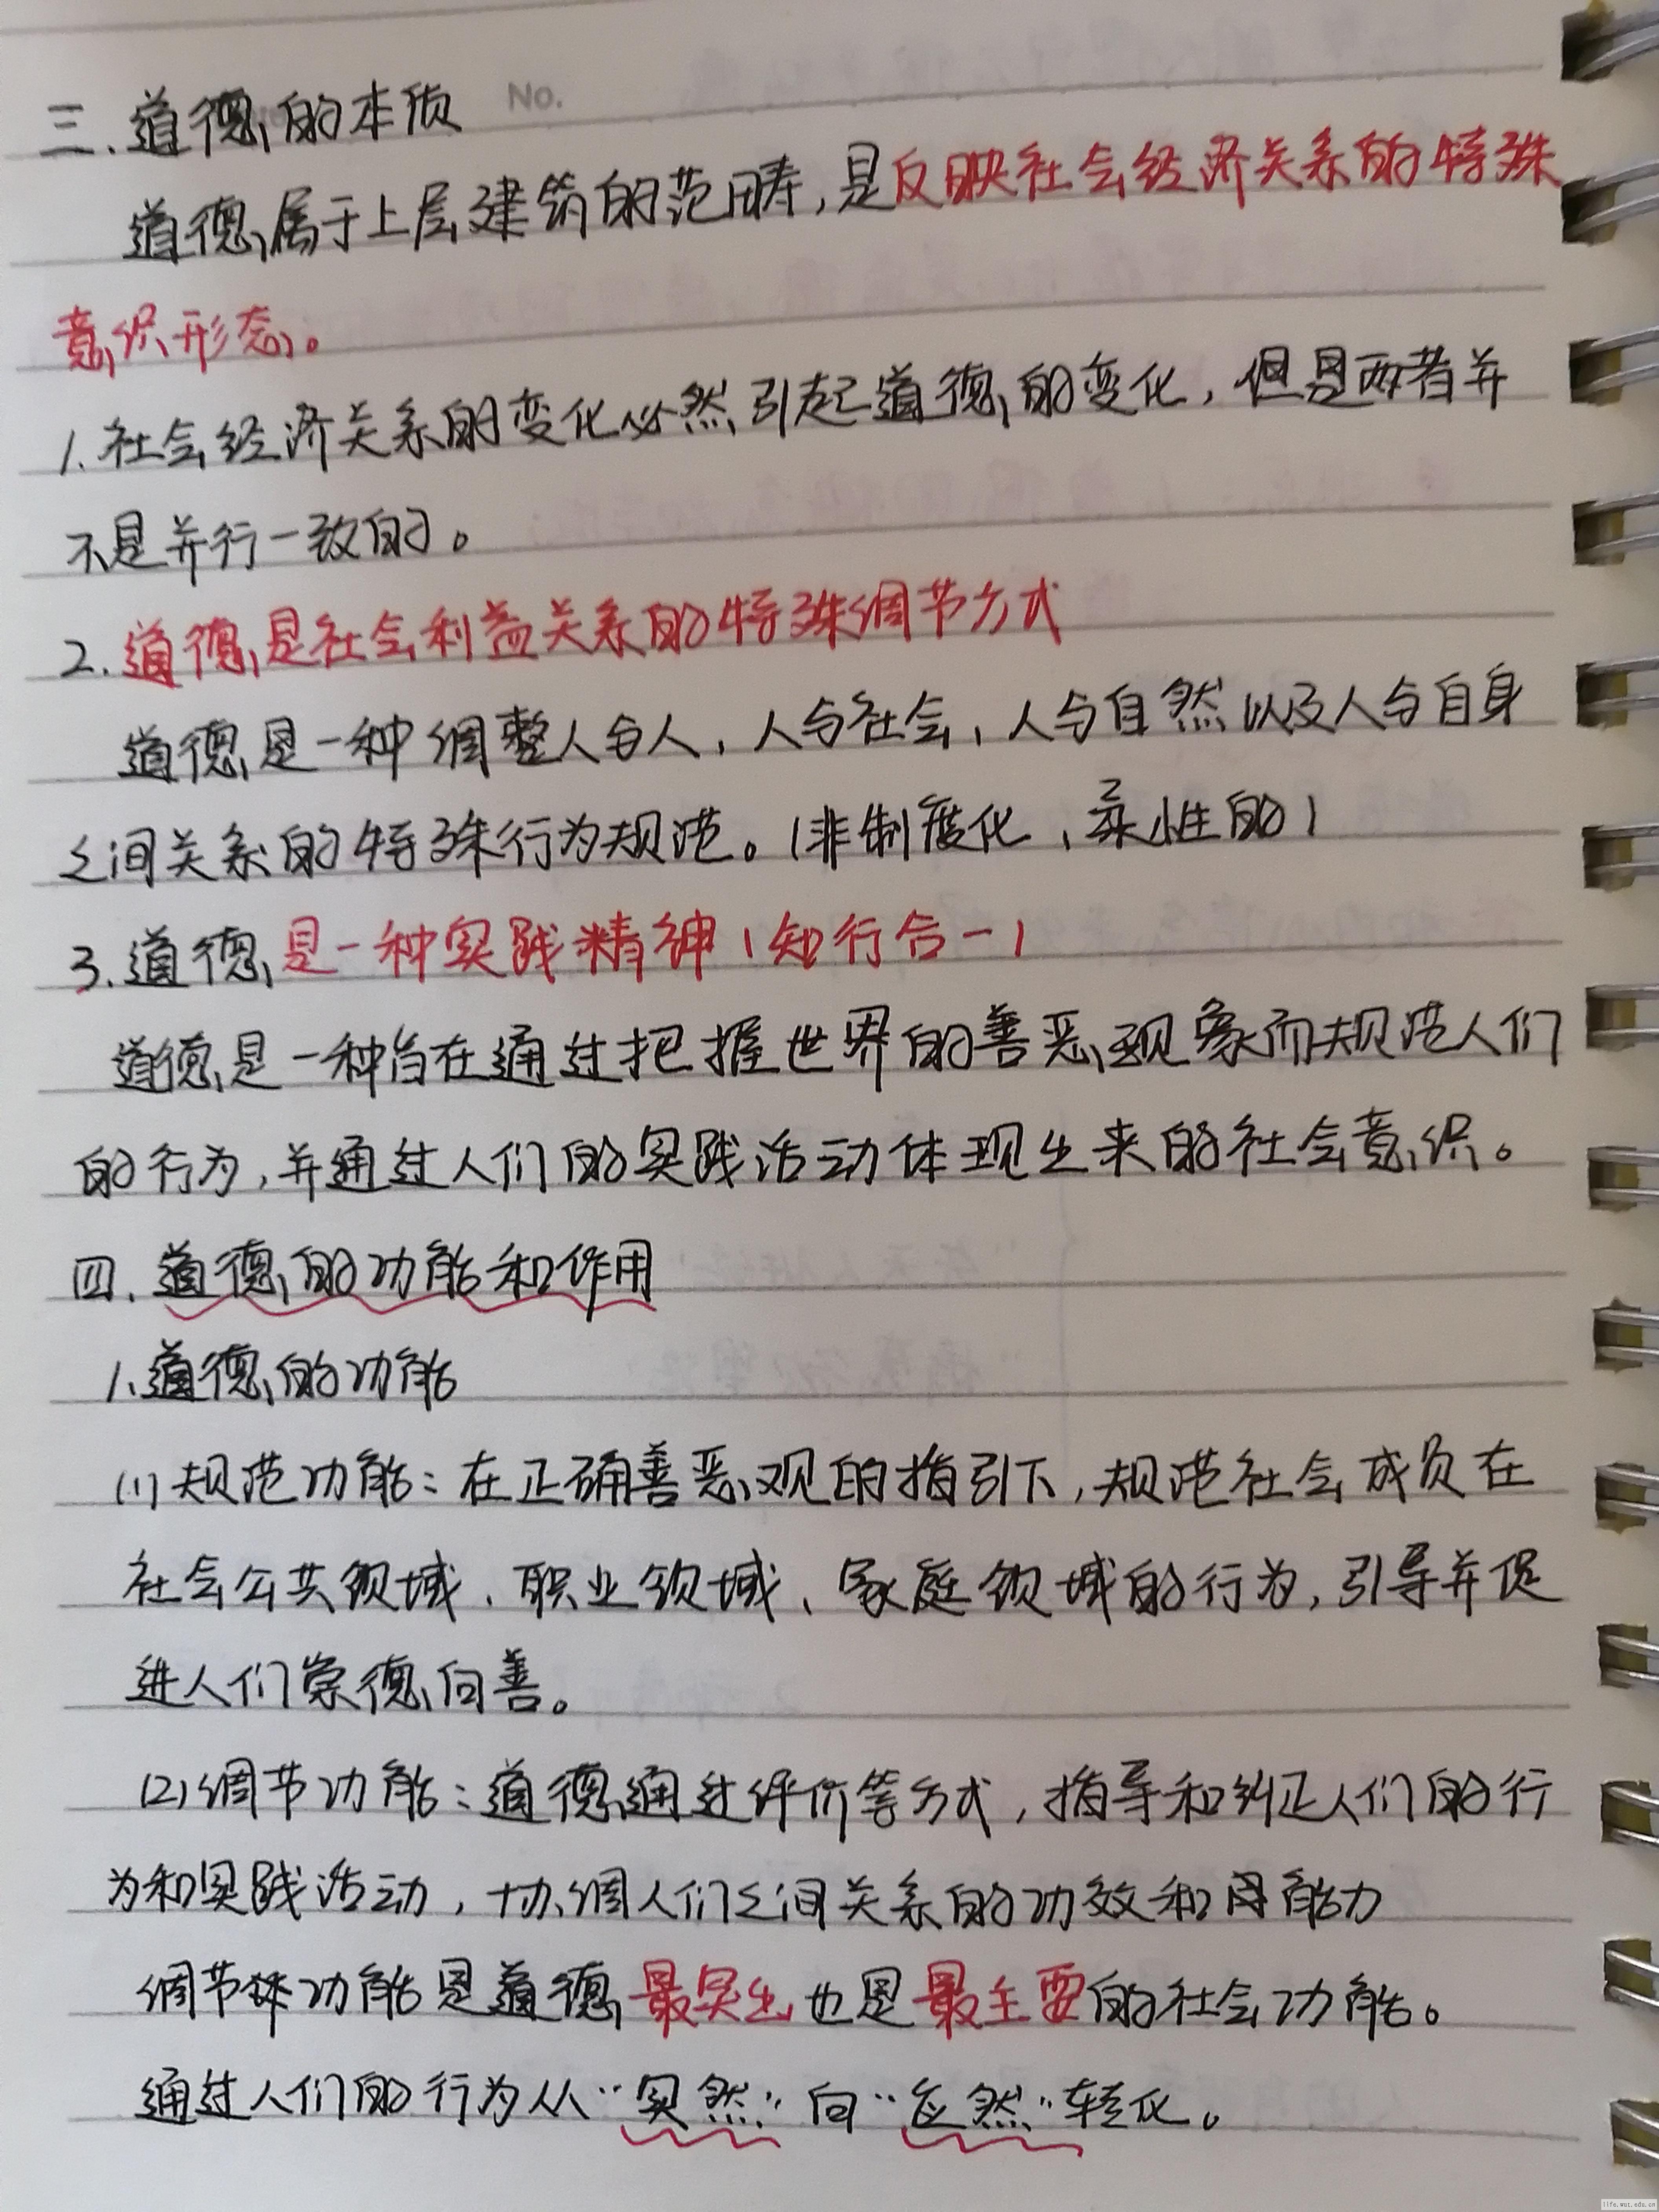 No.
三.道德的本质
道德属于上层建筑的范畴,是反映社会经济关系的特殊
意识形态。
1.社会经济关系的变化必然引起道德的变化,但是两者并
不是并行一致的。
2.道德是社会利益关系的特殊调节方式
道德是一种调整人与人,人与社会,人与自然以及人与自身
之间关系的特殊行为规范。(非制度化,柔性的)
3.道德是一种实践精神(知行合一)
道德是一种旨在通过把握世界的善恶现象而规范人们
的行为,并通过人们的实践活动体现出来的社会意识。
四.道德的功能和作用
1.道德的功能
(1)规范功能:在正确善恶观的指引下,规范社会成员在
社会公共领域、职业领域、家庭领域的行为,引导并促
进人们崇德向善。
(2)调节功能:道德通过评价等方式,指导和纠正人们的行
为和实践活动,协调人们之间关系的功效和能力
调节功能是道德最突出也是最主要的社会功能。
通过人们的行为从"实然"向"应然"转化。
life.wut.edu.cn